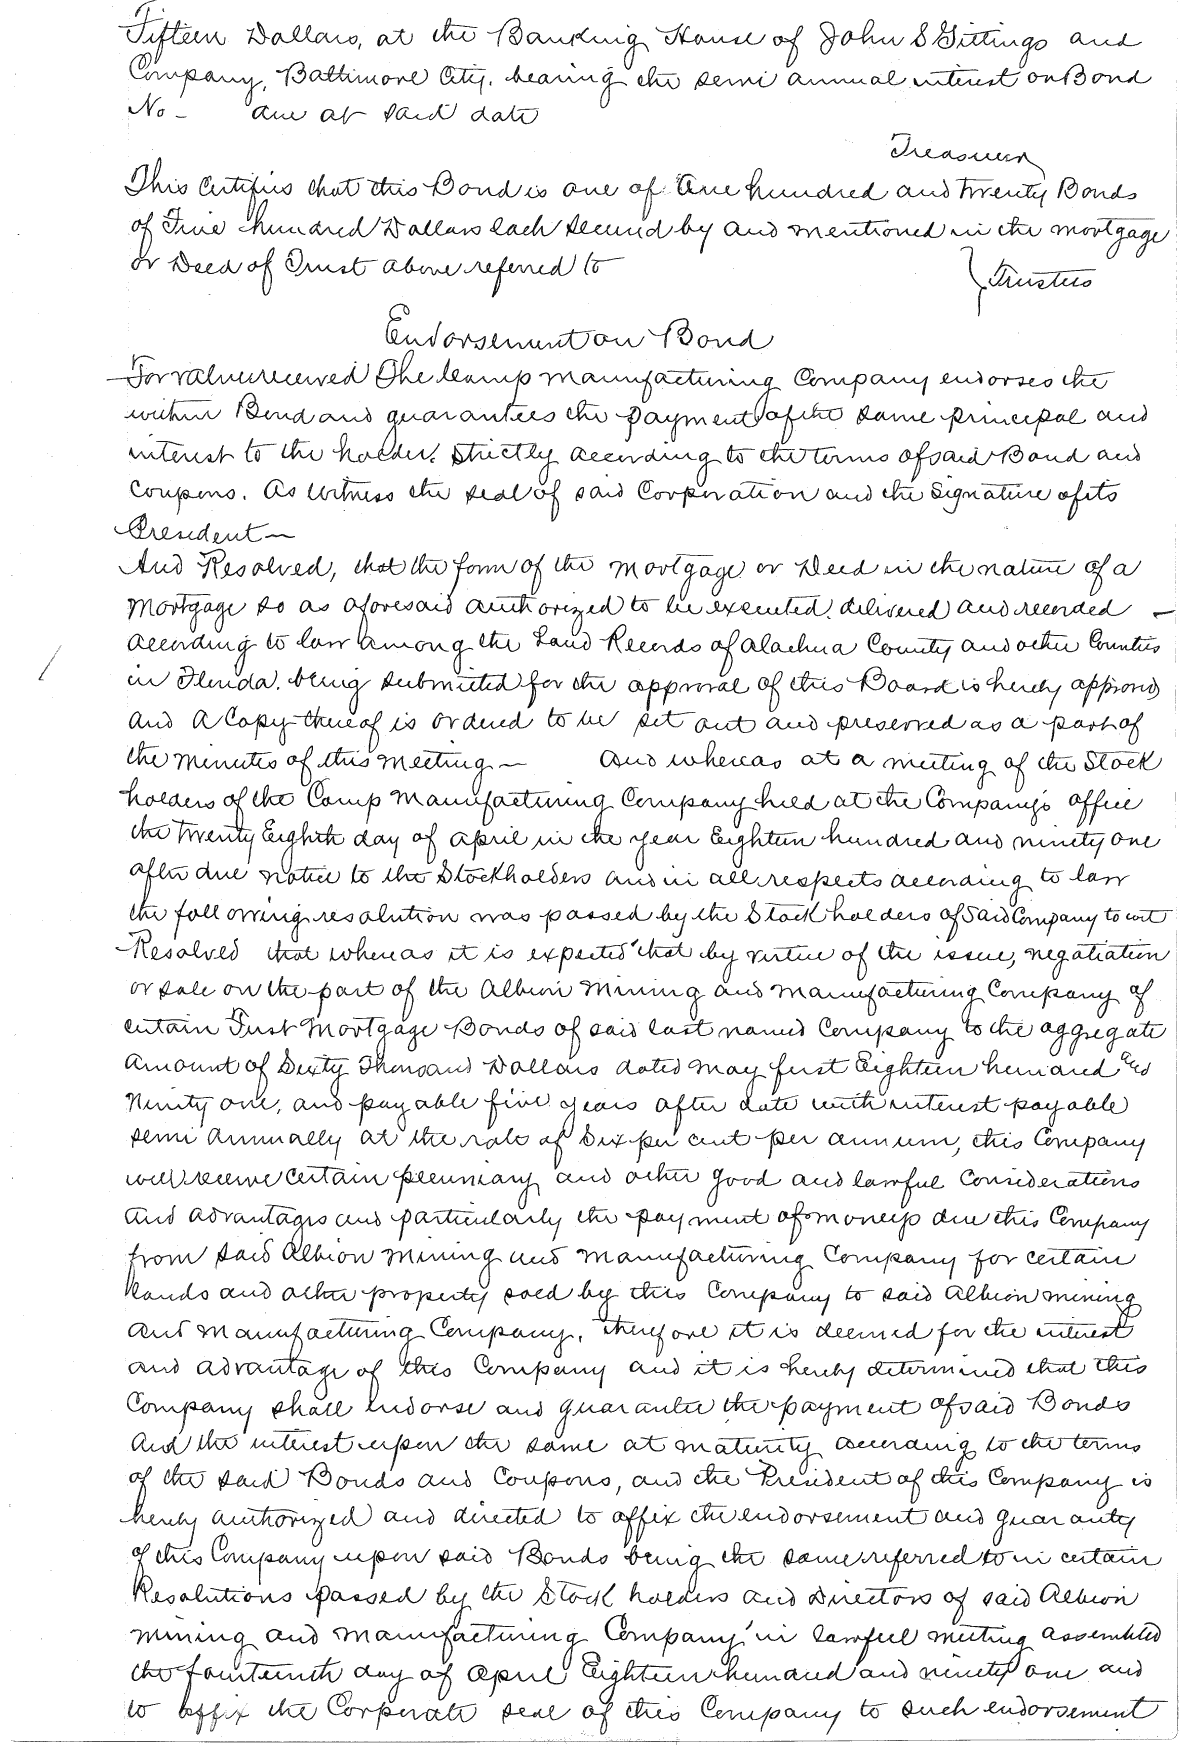 Fifteen Dollars, at the Banking House of John S Gittings and
Company, Baltimore City. bearing the semi annual interest on Bond
No - due at said date
Treasurer
This Certifies that this Bond is one of One hundred and Twenty Bonds
of Five hundred Dollars each secured by and mentioned in the mortgage
or Deed of Trust above referred to
} Trustees
Endorsement on Bond
For value received The Camp Manufacturing Company endorses the
within Bond and guarantees the payment of the same principal and
interest to the holder. Strictly according to the terms of said Bond and
Coupons. As witness the seal of said Corporation and the Signature of its
President —
And Resolved, that the form of the Mortgage or Deed in the nature of a
Mortgage so as aforesaid authorized to be executed. delivered and recorded —
according to law among the Land Records of Alachua County and other Counties
in Florida. being submitted for the approval of this Board is hereby approved
and a Copy thereof is ordered to be set out and preserved as a part of
the minutes of this meeting — And whereas at a meeting of the Stock
holders of the Camp Manufacturing Company held at the Company's office
the twenty Eighth day of April in the year Eighteen hundred and ninety one
after due notice to the Stockholders and in all respects according to law
the following resolution was passed by the Stock holders of Said Company to wit
Resolved that whereas it is expected that by virtue of the issue, negotiation
or sale on the part of the Albion Mining and Manufacturing Company of
certain First Mortgage Bonds of said last named Company to the aggregate
amount of Sixty Thousand Dollars dated May first Eighteen hundred and
Ninety one, and payable five years after date with interest payable
semi annually at the rate of Six per cent per annum, this Company
will receive certain pecuniary and other good and lawful Considerations
and advantages and particularly the payment of moneys due this Company
from said Albion Mining and Manufacturing Company for certain
lands and other property sold by this Company to said Albion Mining
and Manufacturing Company. Therefore it is deemed for the interest
and advantage of this Company and it is hereby determined that this
Company shall endorse and guarantee the payment of said Bonds
And the interest upon the same at maturity according to the terms
of the said Bonds and Coupons, and the President of this Company is
hereby authorized and directed to affix the endorsement and guaranty
of this Company upon said Bonds being the same referred to in certain
Resolutions passed by the Stock holders and Directors of said Albion
Mining and Manufacturing Company in lawful meeting assembled
the fourteenth day of April Eighteen hundred and ninety one and
to affix the Corporate seal of this Company to such endorsement